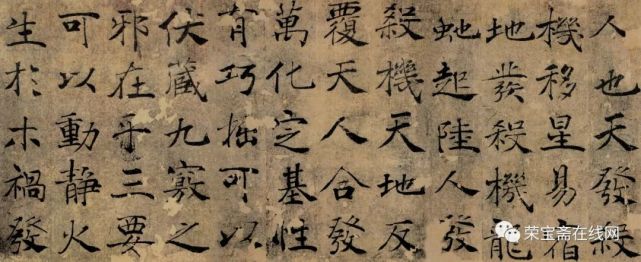 人也天發殺
機移星易宿
地發殺機龍
虵起陸人發
殺機天地反
覆天人合發
萬化定基性
有巧拙可以
伏藏九竅之
邪在乎三要
可以動静火
生於木禍發
荣宝斋在线网